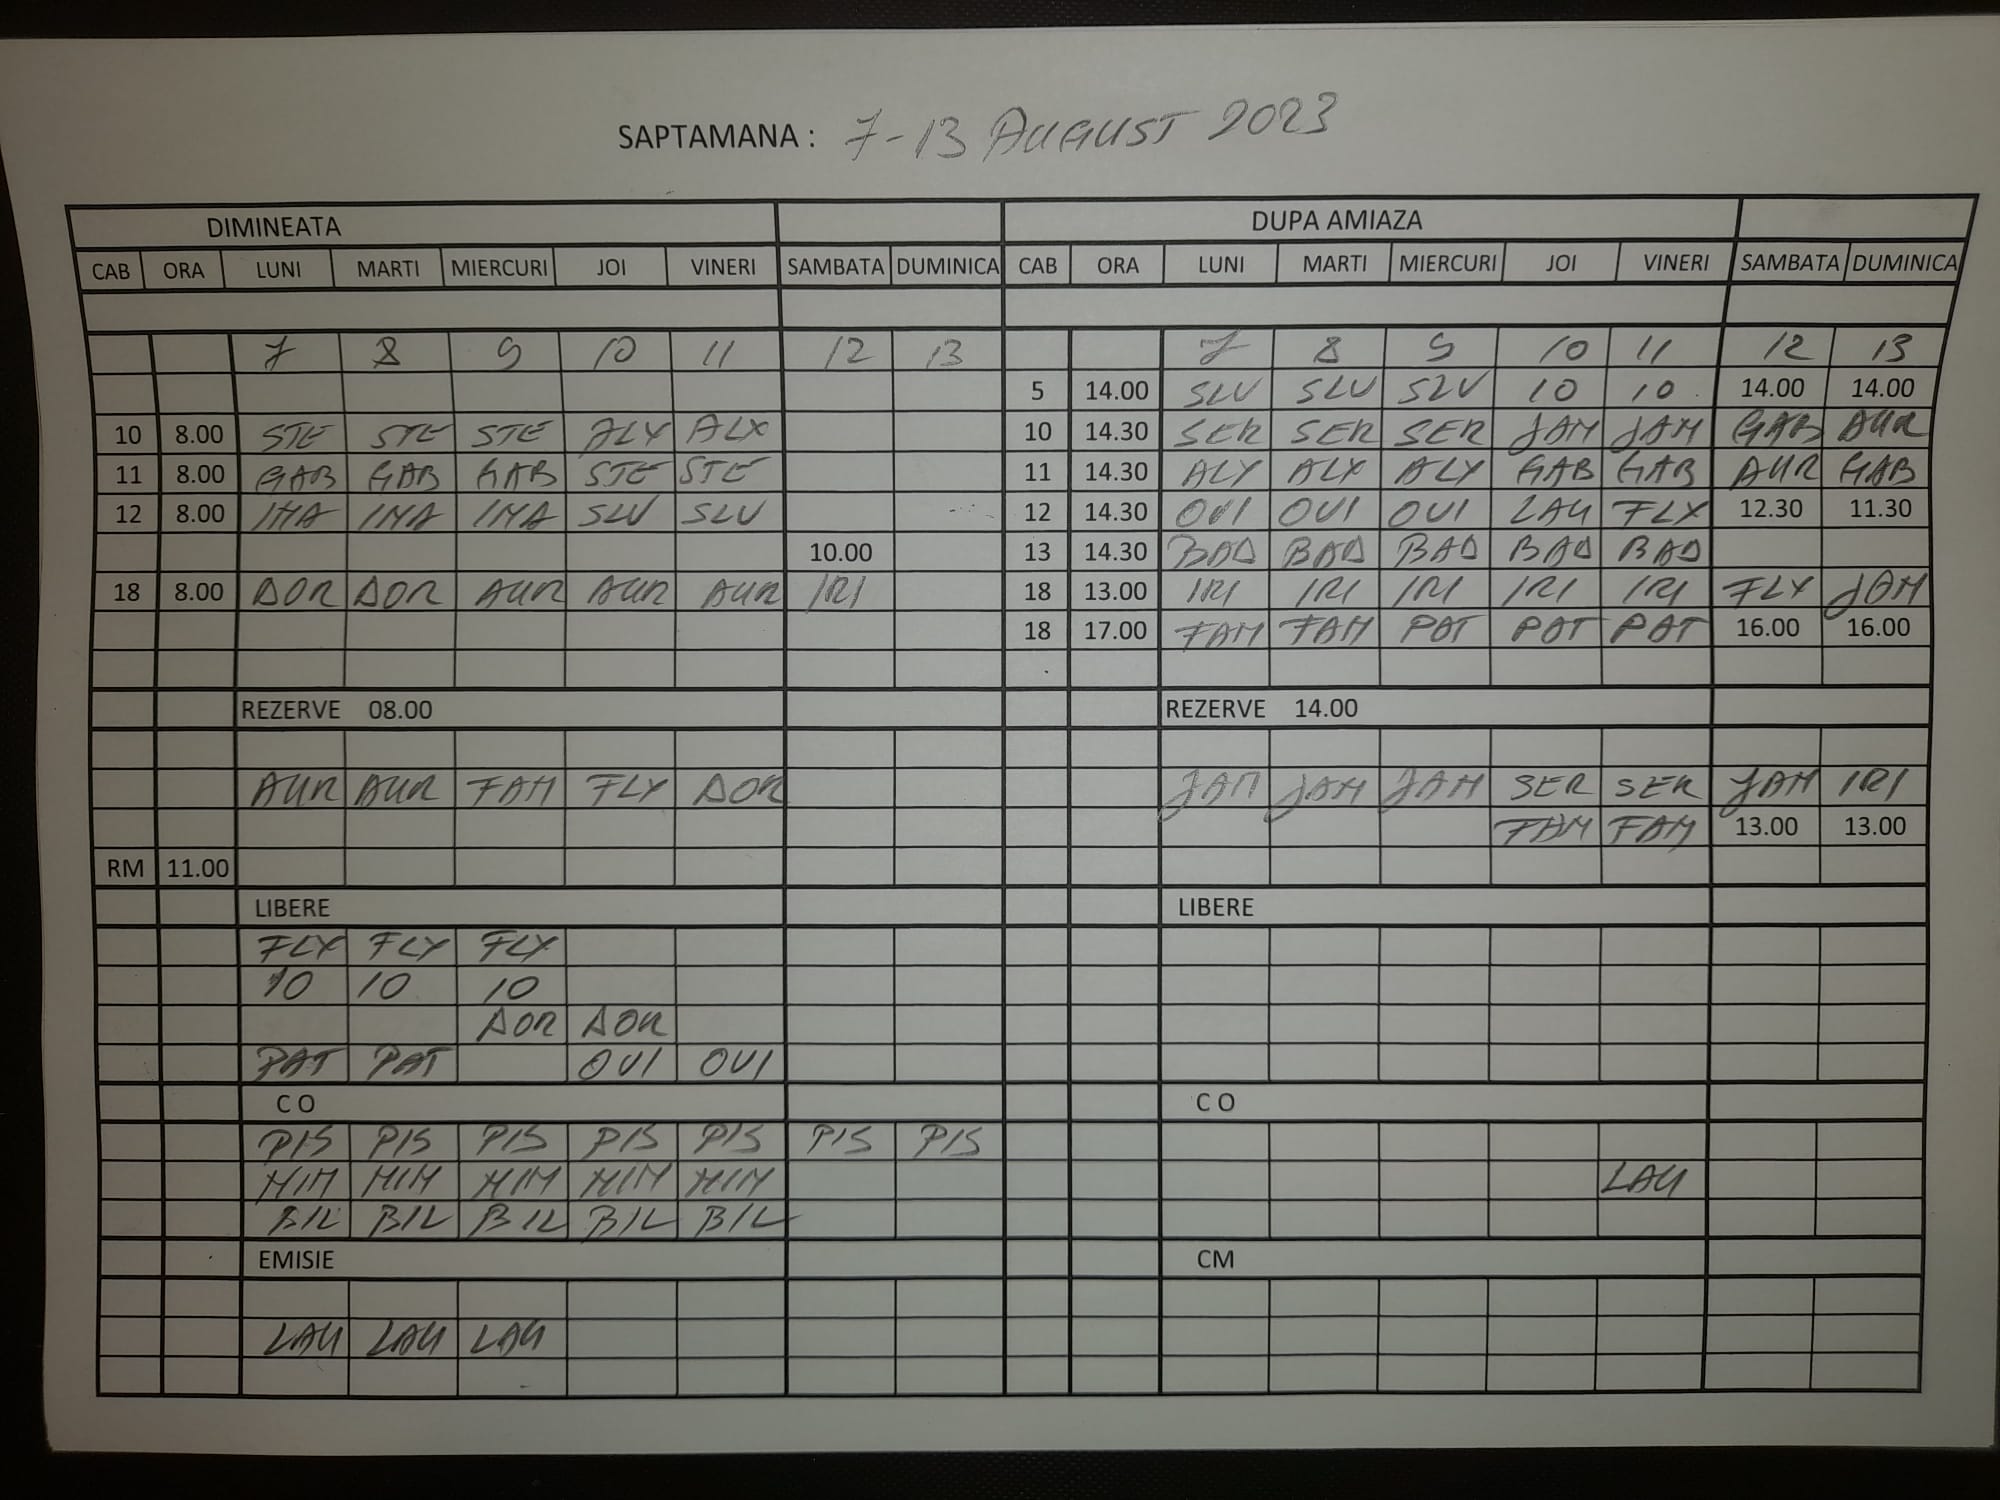 SAPTAMANA : 7-13 AUGUST 2023
DIMINEATA DUPA AMIAZA
CAB ORA LUNI MARTI MIERCURI JOI VINERI SAMBATA DUMINICA CAB ORA LUNI MARTI MIERCURI JOI VINERI SAMBATA DUMINICA
7 8 9 10 11 12 13 7 8 9 10 11 12 13
5 14.00 SLV SLV SLV 10 10 14.00 14.00
10 8.00 STE STE STE ALX ALX 10 14.30 SER SER SER JAM JAM GAB AUR
11 8.00 GAB GAB GAB STE STE 11 14.30 ALX ALX ALX GAB GAB AUR GAB
12 8.00 INA INA INA SLV SLV 12 14.30 OVI OVI OVI LAU FLX 12.30 11.30
10.00 13 14.30 BAD BAD BAD BAD BAD
18 8.00 DOR DOR AUR AUR AUR IRI 18 13.00 IRI IRI IRI IRI IRI FLX JAM
18 17.00 FAM FAM PAT PAT PAT 16.00 16.00
REZERVE 08.00 REZERVE 14.00
AUR AUR FAM FLX DOR JAM JAM JAM SER SER JAM IRI
FAM FAM 13.00 13.00
RM 11.00
LIBERE LIBERE
FLX FLX FLX
10 10 10
DOR DOR
PAT PAT OVI OVI
C O C O
PIS PIS PIS PIS PIS PIS PIS
MIM MIM MIM MIM MIM LAU
BIL BIL BIL BIL BIL
EMISIE CM
LAU LAU LAU